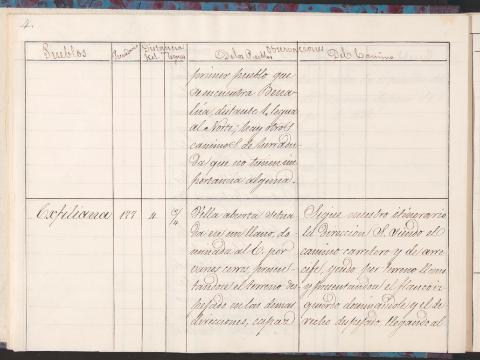 4.
Pueblos
Distancia
Kil. Leguas
Observaciones
De los Pueblos
Del Camino
primer pueblo que
se encuentra Bena-
lúa, distante 1. legua
al Norte; hay otros
caminos de herradu-
ra que no tienen im
portancia alguna.
Exfiliana 188 4
Villa abierta situa
da en un llano, do
minada al E. por
varios cerros, presen-
tandose el terreno des
pejado en las demas
direcciones, capaz
Sigue nuestro itinerario
la Direccion S. siendo el
camino carretero y de arre
cife, yendo por terreno llano
y presentandose el flanco iz
quierdo dominandole y el de
recho despejado, llegando al